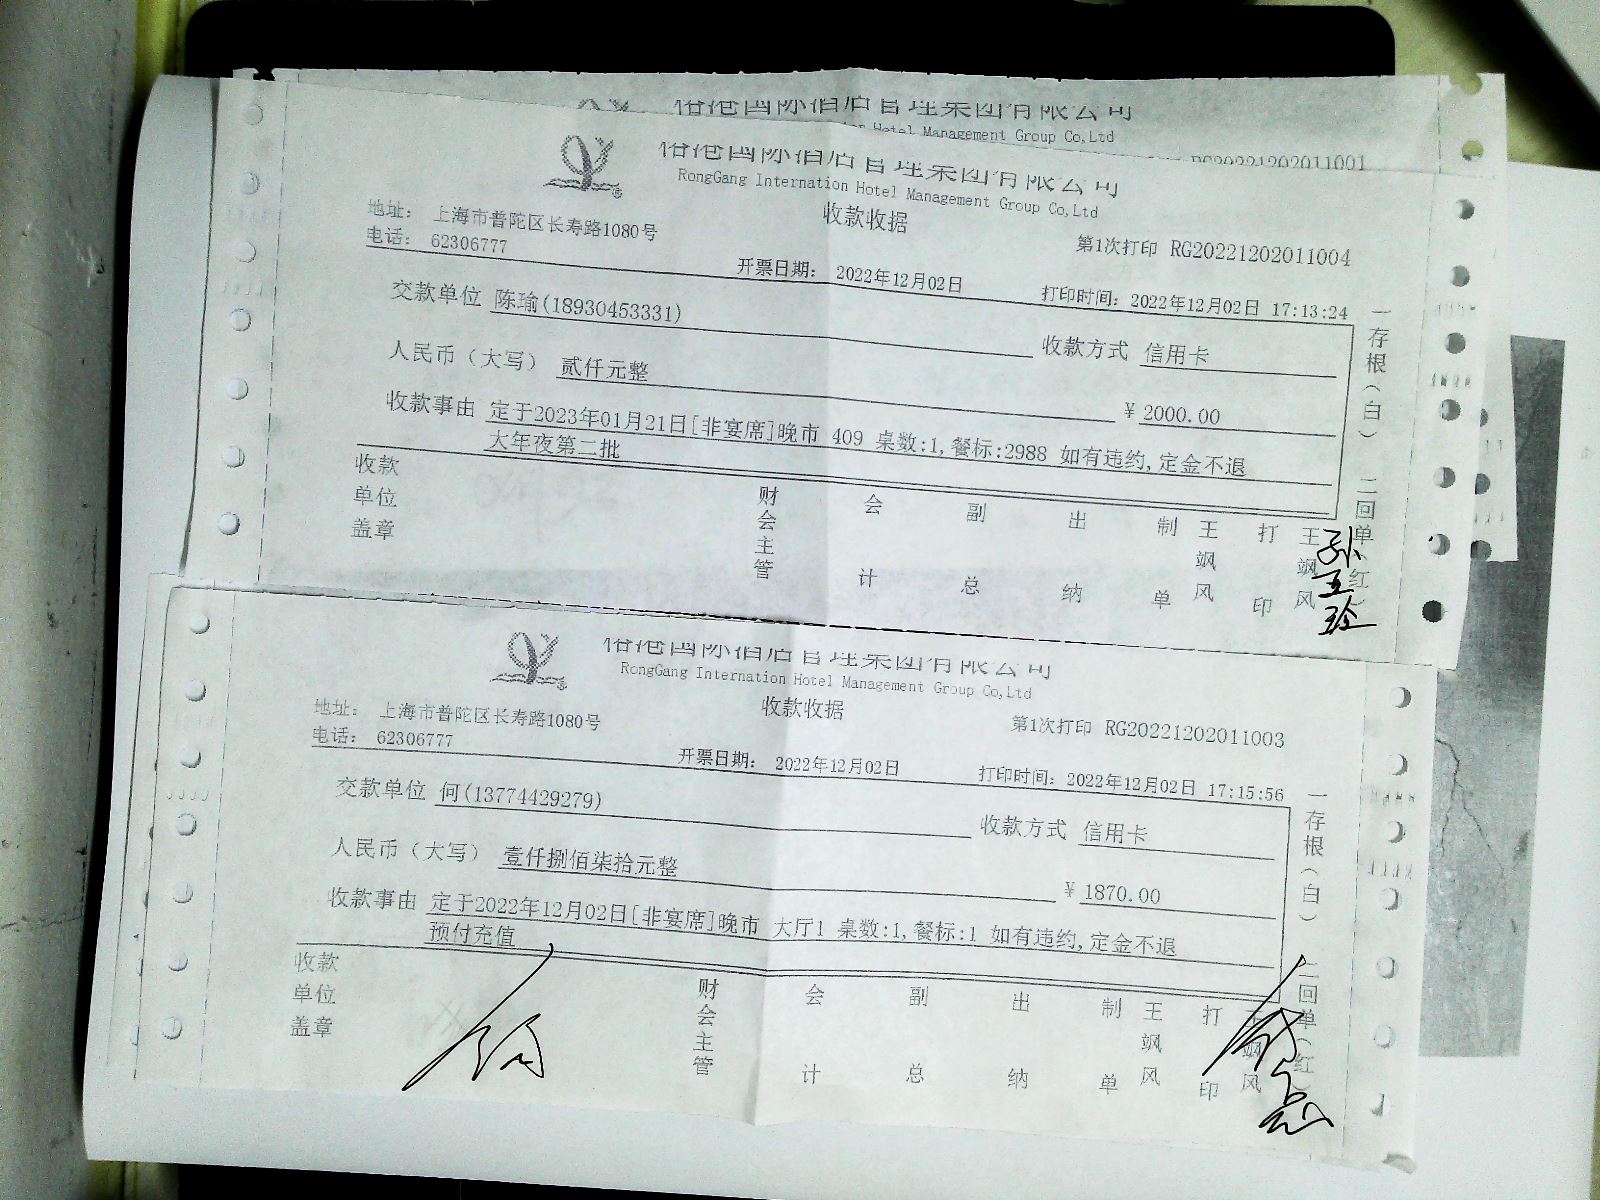 港国际酒店管理集团有限公司
Hotel Management Group Co,Ltd
RG20221202011001
港国际酒店管理集团有限公司
RongGang Internation Hotel Management Group Co,Ltd
收款收据
地址: 上海市普陀区长寿路1080号
电话: 62306777
第1次打印 RG20221202011004
开票日期: 2022年12月02日
打印时间: 2022年12月02日 17:13:24
交款单位 陈瑜(18930453331)
收款方式 信用卡
人民币（大写） 贰仟元整
¥ 2000.00
收款事由 定于2023年01月21日[非宴席]晚市 409 桌数:1,餐标:2988 如有违约,定金不退
大年夜第二批
一存根(白) 二回单(红
收款单位盖章
财会主管
会计
副总
出纳
制单
王飒风
打印
王飒风
孙玉玲
港国际酒店管理集团有限公司
RongGang Internation Hotel Management Group Co,Ltd
收款收据
地址: 上海市普陀区长寿路1080号
电话: 62306777
第1次打印 RG20221202011003
开票日期: 2022年12月02日
打印时间: 2022年12月02日 17:15:56
交款单位 何(13774429279)
收款方式 信用卡
人民币（大写） 壹仟捌佰柒拾元整
¥ 1870.00
收款事由 定于2022年12月02日[非宴席]晚市 大厅1 桌数:1,餐标:1 如有违约,定金不退
预付充值
一存根(白) 二回单(红)
收款单位盖章
何
财会主管
会计
副总
出纳
制单
王飒风
打印
王飒风